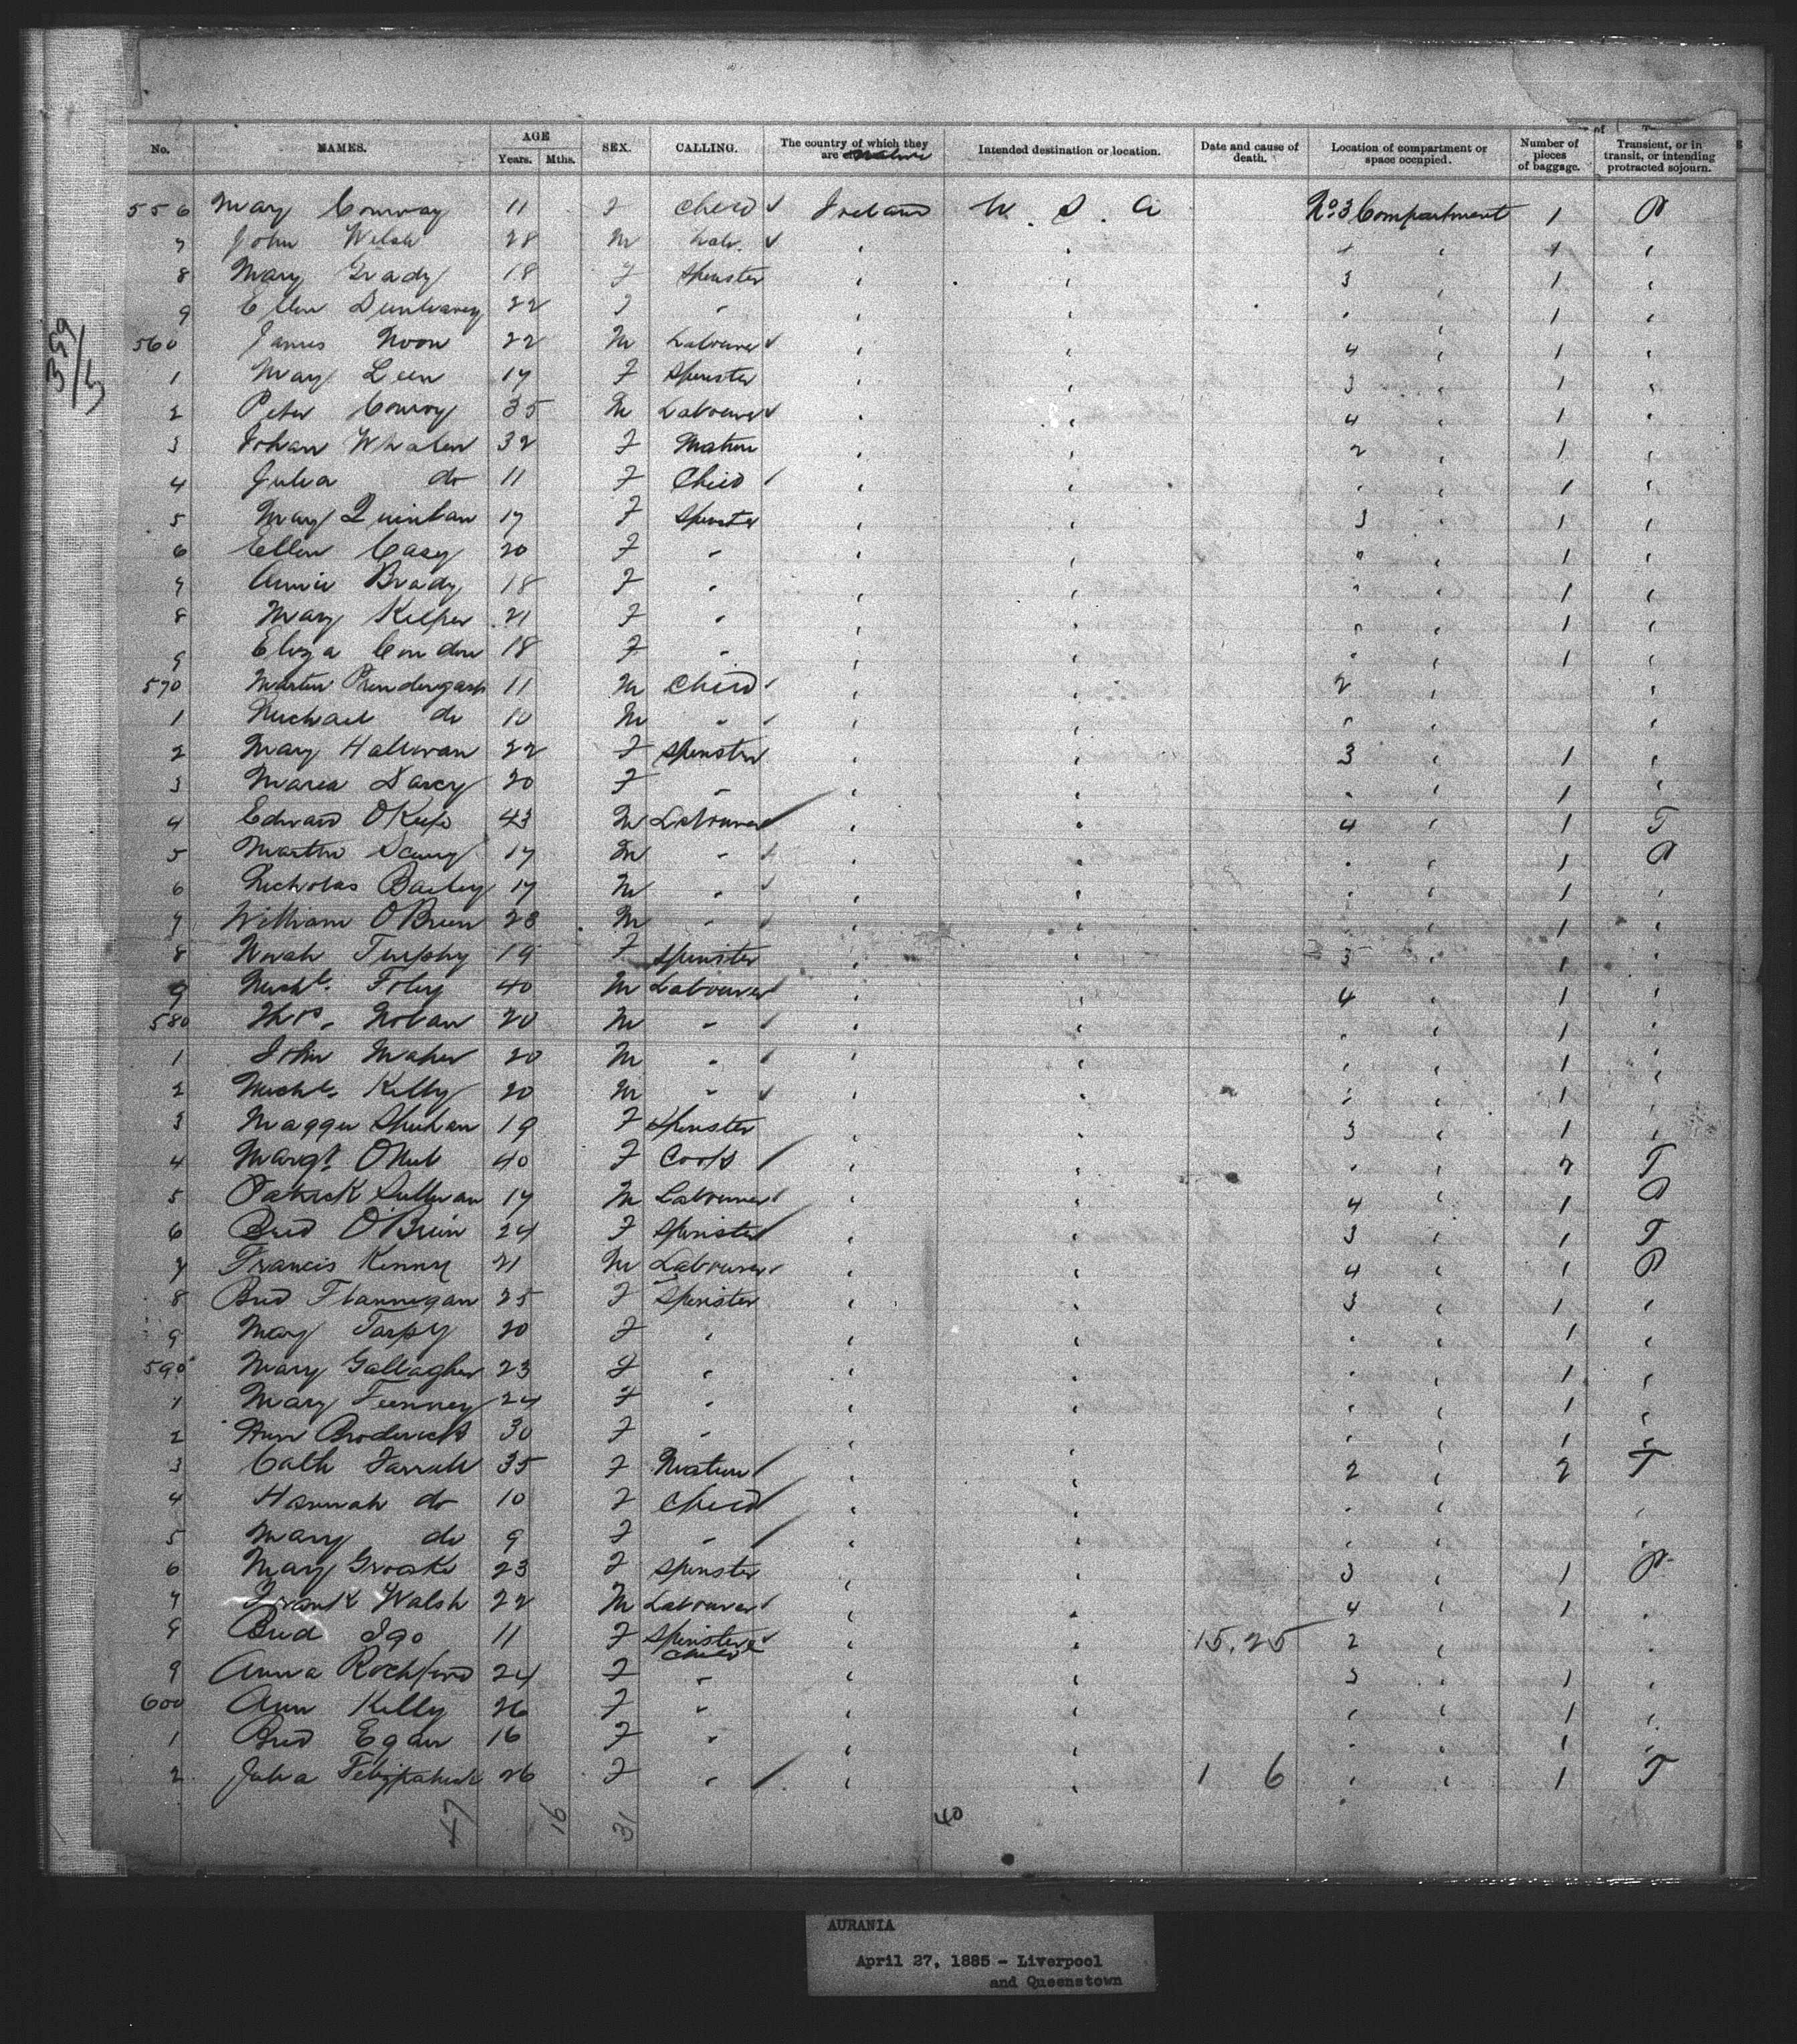 No. NAMES. AGE Years. Mths. SEX. CALLING. The country of which they are native Intended destination or location. Date and cause of death. Location of compartment or space occupied. Number of pieces of baggage. Transient, or in transit, or intending protracted sojourn.
359/6
556 Mary Conway 11 F Child Ireland U. S. A No 3 Compartment 1 P
7 John Welsh 28 M Labr. 4 " 1 "
8 Mary Grady 18 F Spinster " " 3 " 1 "
9 Ellen Dunleavey 22 F " " " " " 1 "
560 James Noon 22 M Labourer " " 4 " 1 "
1 Mary Leen 17 F Spinster " " 3 " 1 "
2 Peter Conroy 35 M Labourer " " 4 " 1 "
3 Johan Whalen 32 F Matron " " 2 " 1 "
4 Julia do 11 F Child " " " " 1 "
5 Mary Quinlan 17 F Spinster " " 3 " 1 "
6 Ellen Casy 20 F " " " " " 1 "
7 Annie Brady 18 F " " " " " 1 "
8 Mary 21 F " " " " " 1 "
9 Eliza Condon 18 F " " " " " 1 "
570 Martin Prendergast 11 M Child " " 2 " "
1 Michael do 10 M " " " " " "
2 Mary Halloran 22 F Spinster " " 3 " 1 "
3 Maria Darcy 20 F " " " " " 1 "
4 Edward OKeefe 43 M Labourer " " 4 " 1 T
5 Martin 17 M " " " " " 1 P
6 Nicholas Bailey 17 M " " " " " 1 "
7 William OBrien 28 M " " " " " 1 "
8 Norah 19 F Spinster " " 3 " 1 "
9 Michl. Foley 40 M Labourer " " 4 " 1 "
580 Thos. Nolan 20 M " " " " " 1 "
1 John Maher 20 M " " " " " 1 "
2 Michl. Kelly 20 M " " " " " 1 "
3 Maggie Sheehan 19 F Spinster " " 3 " 1 "
4 Margt ONeil 40 F Cook " " " " 2 T
5 Patrick Sullivan 17 M Labourer " " 4 " 1 P
6 Brid O'Brien 24 F Spinster " " 3 " 1 T
7 Francis Kenny 21 M Labourer " " 4 " 1 P
8 Brid Flannegan 25 F Spinster " " 3 " 1 "
9 Mary Tarpy 20 F " " " " " 1 "
590 Mary Gallagher 23 F " " " " " 1 "
1 Mary Feenney 24 F " " " " " 1 "
2 Ann Broderick 30 F " " " " " 1 "
3 Cath Farrell 35 F Matron " " 2 " 2 T
4 Hannah do 10 F Child " " " " "
5 Mary do 9 F " " " " " "
6 Mary Groake 23 F Spinster " " 3 " 1 P
7 Frank Walsh 22 M Labourer " " 4 " 1 "
8 Brid Igo 11 F Spinster Child " " 15.25 2 " "
9 Anna Rochford 24 F " " " 3 " 1 "
600 Ann Kelly 26 F " " " " " 1 "
1 Brid Egan 16 F " " " " " 1 "
2 Julia Fitzpatrick 26 F " " " 1 6 " " 1 T
47 16 31 40
AURANIA
April 27, 1885 - Liverpool
and Queenstown